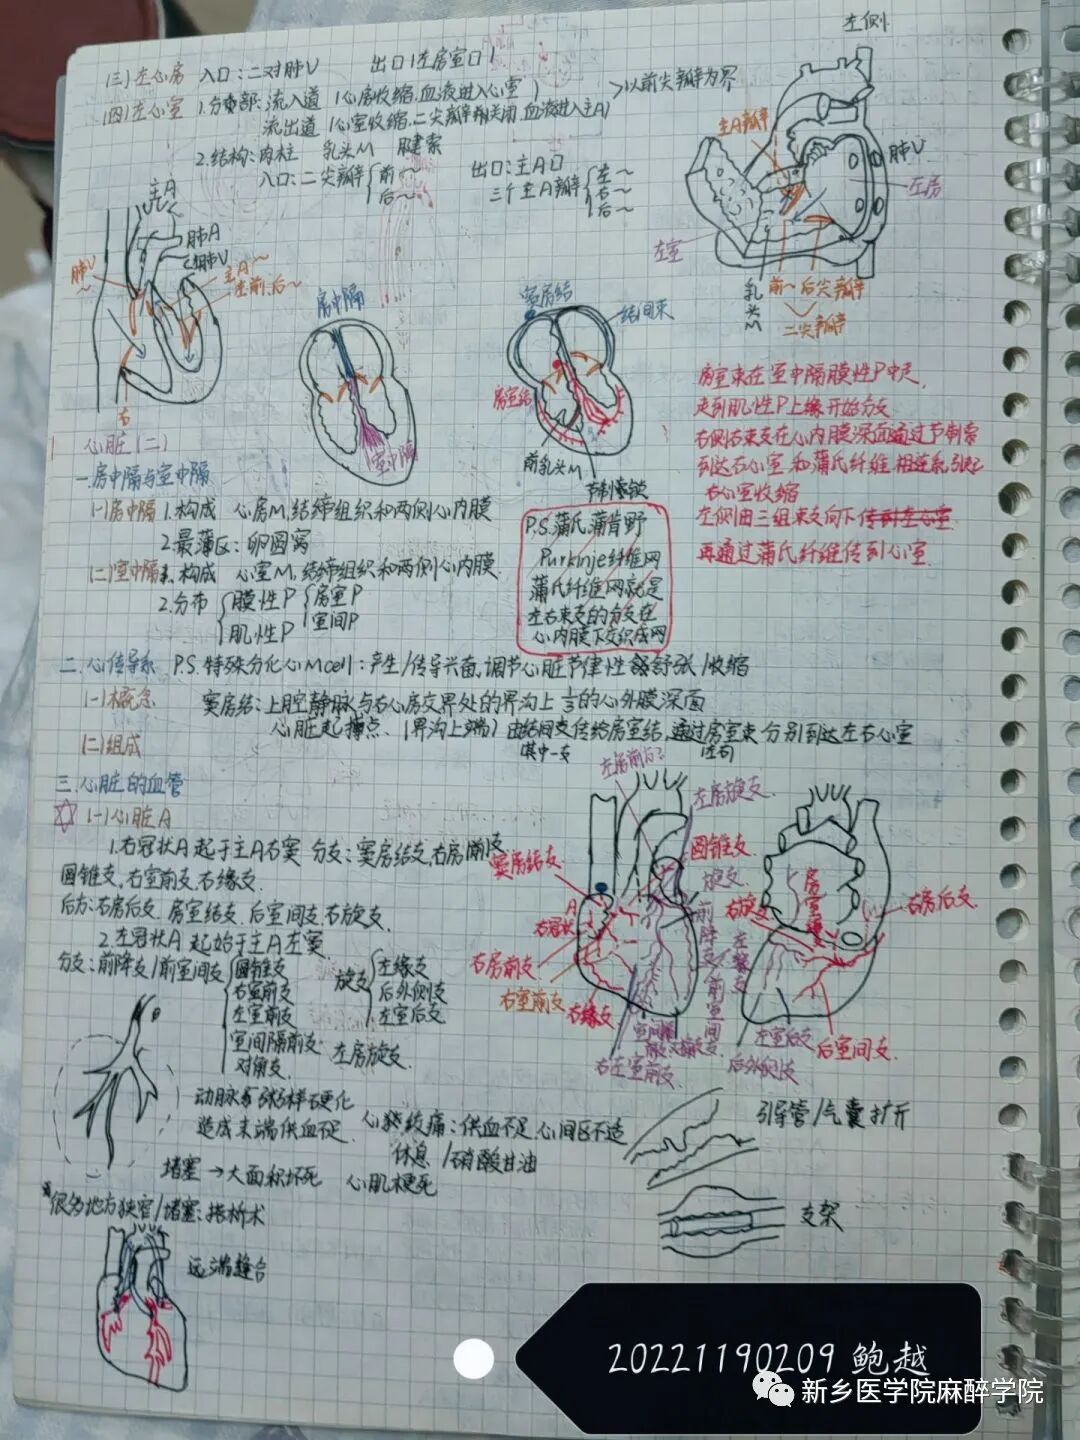 左侧
(三)左心房 入口:二对肺V 出口(左房室口)
(四)左心室 1.分部:流入道 (心房收缩,血液进入心室) >以前尖瓣为界
流出道 (心室收缩,二尖瓣关闭,血液进入主A)
2.结构:肉柱 乳头M 腱索
入口:二尖瓣{前~ 后~
出口:主A口
三个主A瓣{左~ 右~ 后~
主A瓣
肺V
左房
左室
乳头M
前~后尖瓣
二尖瓣
主A
肺A
肺V
主A~
左前,后~
肺V
右
房中隔
室中隔
窦房结
结间束
房室结
前乳头M
节制索
房室束在室中隔膜性P中走,
走到肌性P上缘开始分支
右侧右束支在心内膜深面通过节制索
到达右心室和蒲氏纤维相连系引起
右心室收缩
左侧由三组束支向下传到左心室
再通过蒲氏纤维传到心室.
心脏(二)
一.房中隔与室中隔
(一)房中隔 1.构成 心房M,结缔组织和两侧心内膜
2.最薄区:卵圆窝
(二)室中隔 1.构成 心室M,结缔组织和两侧心内膜.
2.分布{膜性P{房室P 室间P
肌性P
P.S.蒲氏,蒲肯野
Purkinje纤维网
蒲氏纤维网就是
左右束支的分支在
心内膜下交织成网
二.心传导系 P.S.特殊分化心Mcell:产生/传导兴奋,调节心脏节律性舒张/收缩
(一)概念 窦房结:上腔静脉与右心房交界处的界沟上 的心外膜深面
心脏起搏点.(界沟上端)由结间支传给房室结,通过房室束分别到达左右心室
其中一支
(二)组成
三.心脏的血管
(一)心脏A
1.右冠状A 起于主A右窦 分支:窦房结支,右房前支
圆锥支,右室前支,右缘支.
后方:右房后支.房室结支.后室间支.右旋支.
2.左冠状A 起始于主A左窦.
分支:前降支/前室间支{圆锥支 右室前支 左室前支 室间隔前支 对角支.
旋支{左缘支 后外侧支 左室后支
左房旋支.
左房旋支.
圆锥支.
旋支.
窦房结支
A
右冠状
右房前支
右室前支
右缘支
前降支/前室间支
左缘支
右左室前支
右旋支
右房后支.
左室后支
后外侧支
后室间支.
动脉粥样硬化
造成末端供血不足.
心绞痛:供血不足,心肌区不适
休息/硝酸甘油
堵塞→大面积坏死 心肌梗死
很多地方狭窄/堵塞:搭桥术
远端缝合
引导管/气囊扩开
支架
20221190209 鲍越
新乡医学院麻醉学院